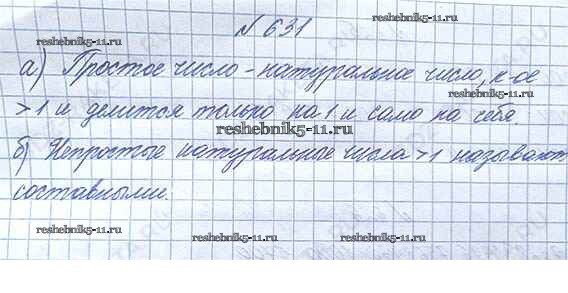 reshebnik5-11.ru
N 631
а) Простое число - натуральное число, к-ое
reshebnik5-11.ru
> 1 и делится только на 1 и само на себя.
reshebnik5-11.ru
б) Непростые натуральные числа > 1 называют
составными.
reshebnik5-11.ru reshebnik5-11.ru